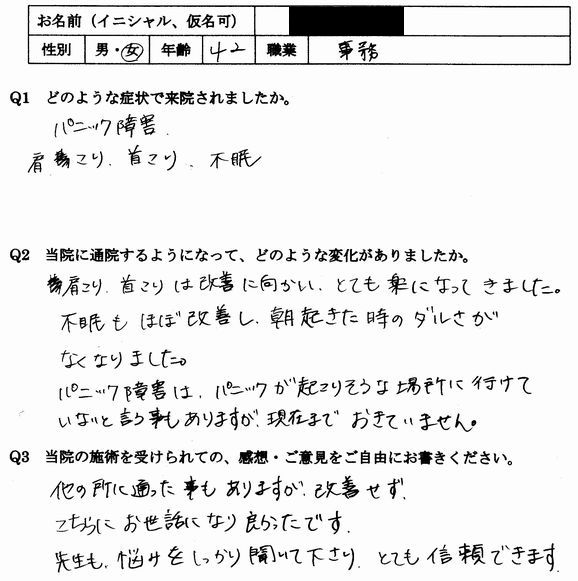 お名前（イニシャル、仮名可）
性別 男・女 年齢 42 職業 事務
Q1 どのような症状で来院されましたか。
パニック障害、
肩こり、首こり、不眠
Q2 当院に通院するようになって、どのような変化がありましたか。
肩こり、首こりは改善に向かい、とても楽になってきました。
不眠もほぼ改善し、朝起きた時のダルさが
なくなりました。
パニック障害は、パニックが起こりそうな場所に行けて
いないと言う事もありますが、現在までおきていません。
Q3 当院の施術を受けられての、感想・ご意見をご自由にお書きください。
他の所に通った事もありますが、改善せず、
こちらにお世話になり良かったです。
先生も、悩みをしっかり聞いて下さり、とても信頼できます。